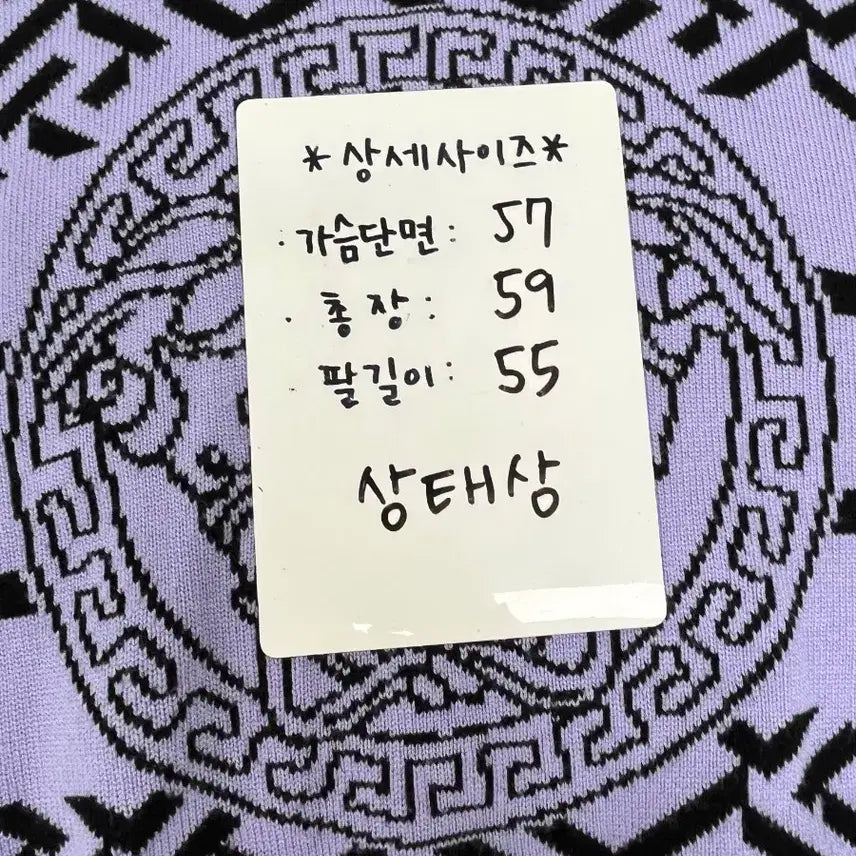 *상세사이즈*
· 가슴단면 : 57
· 총장 : 59
팔길이 : 55
상태상